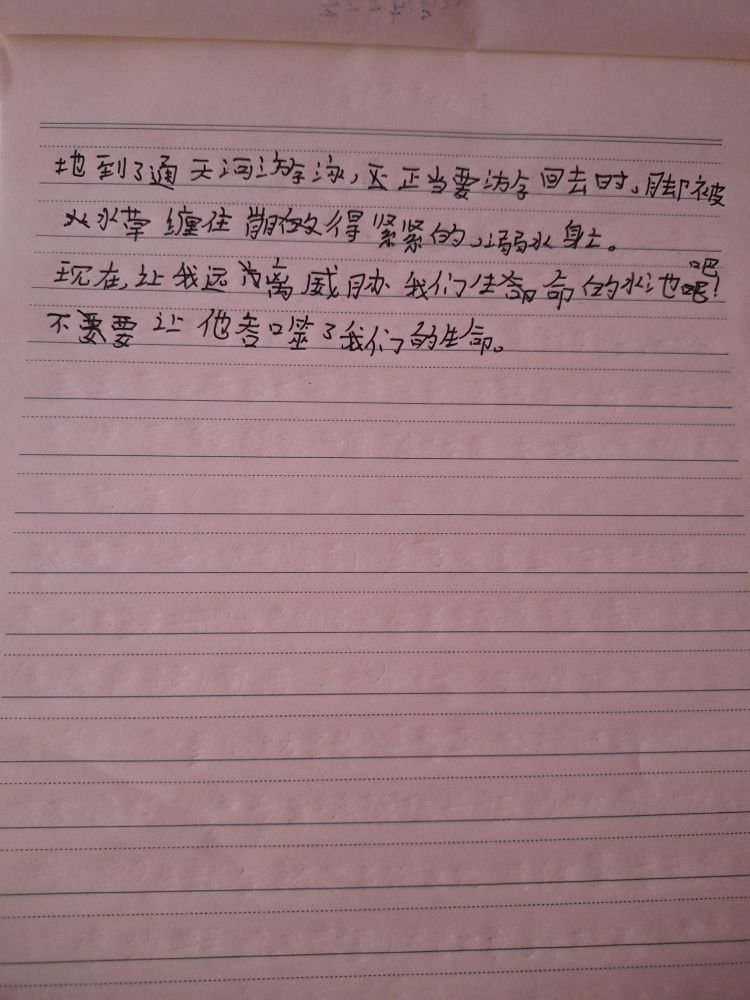 地到了通天河游泳，正当要游回去时。脚被
水草缠住得紧紧的，溺水身亡。
现在，让我远离威胁我们生命的水池吧！
不要让他吞噬了我们的生命。